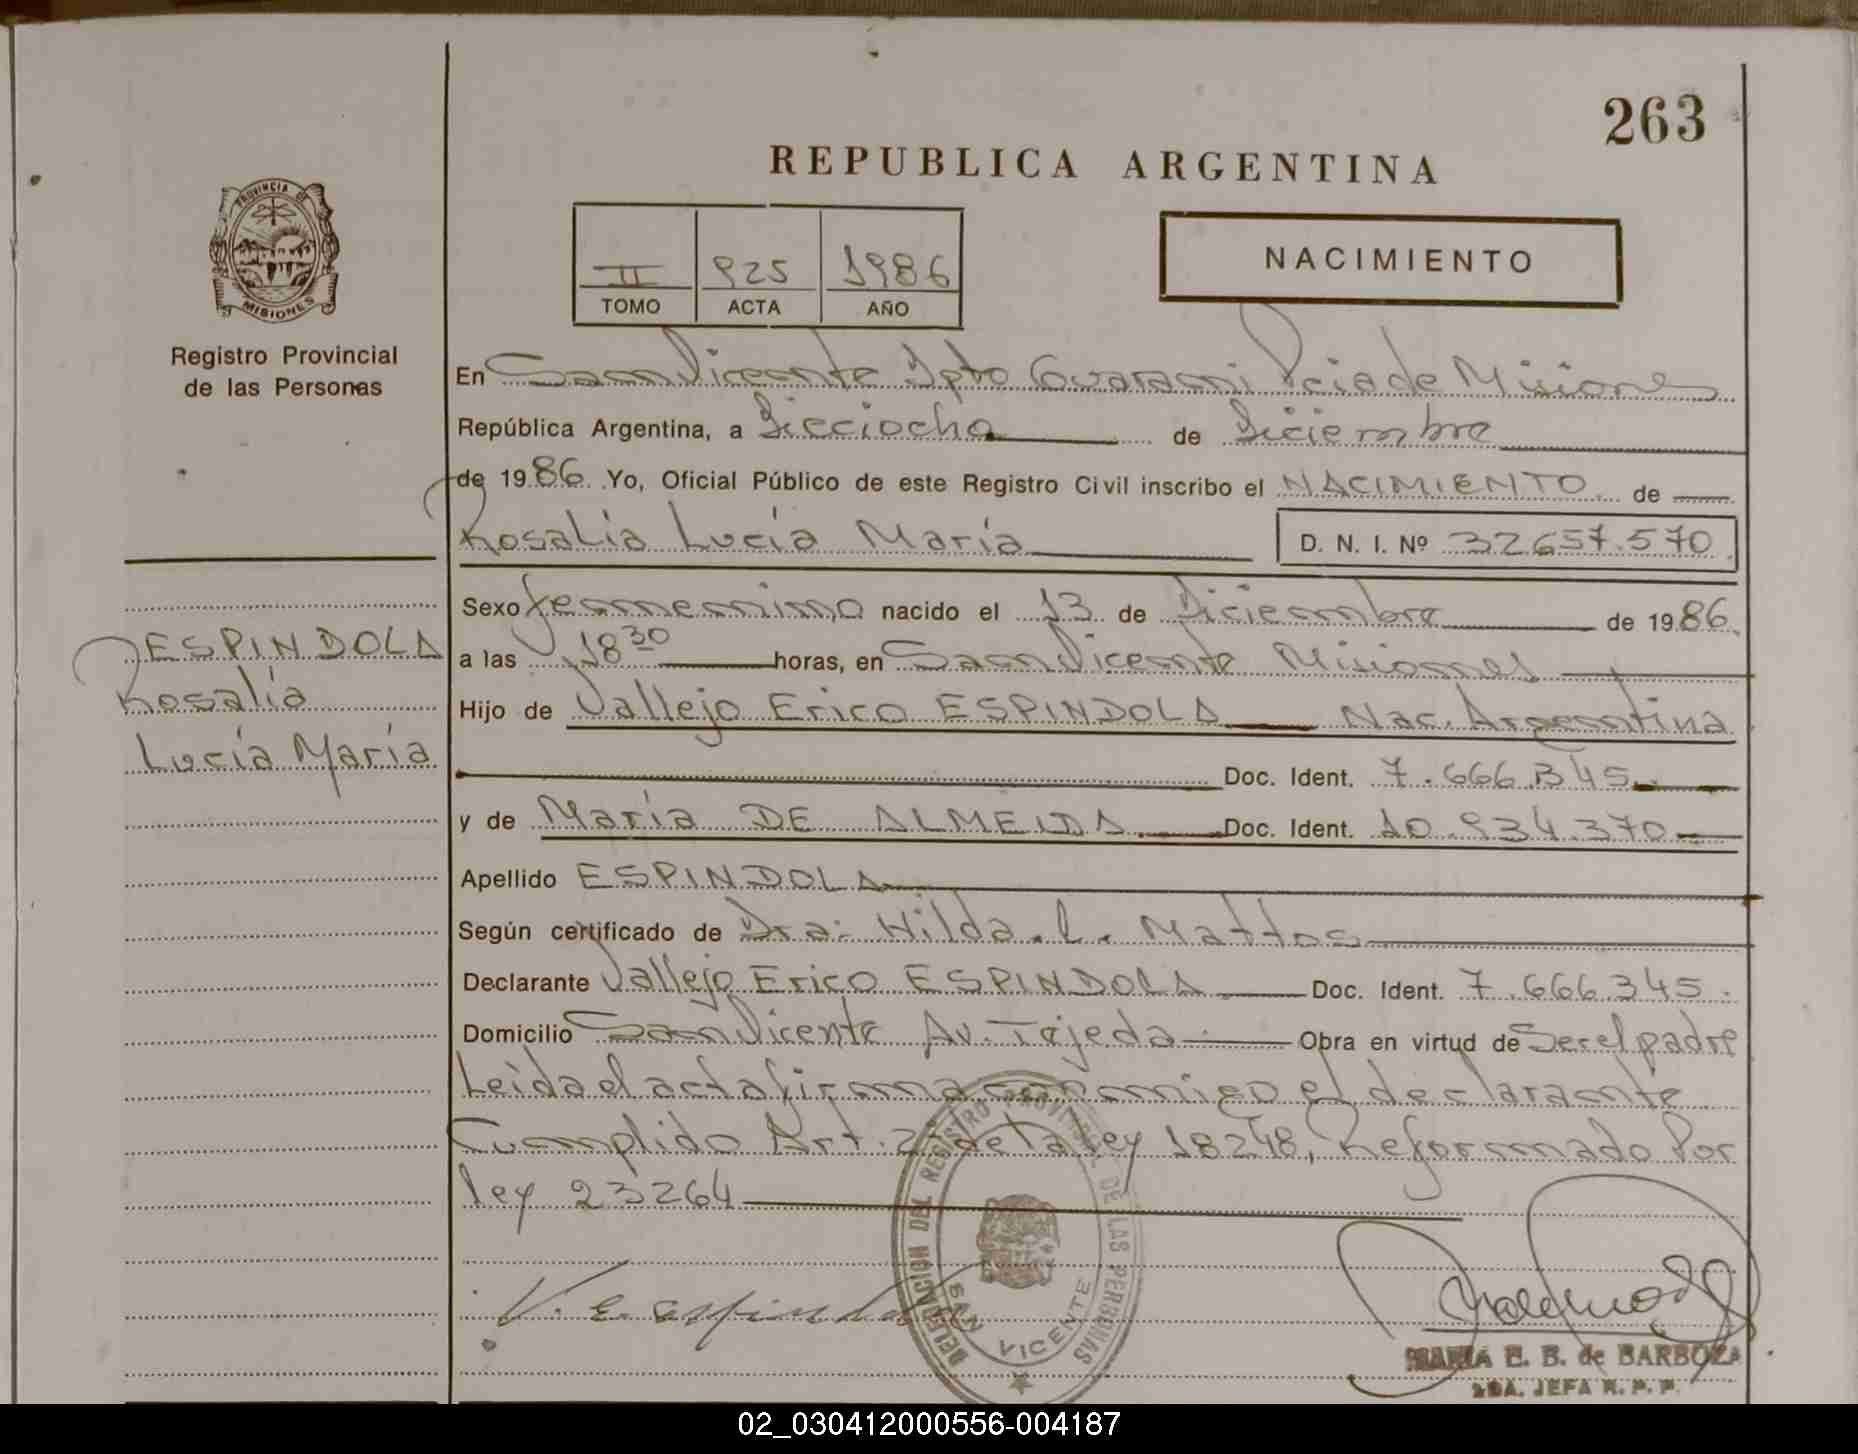 263
REPUBLICA ARGENTINA
PROVINCIA DE
MISIONES
Registro Provincial
de las Personas
II 925 1986
TOMO ACTA AÑO
NACIMIENTO
En San Vicente Dpto Guarani Pcia de Misiones
República Argentina, a Dieciocho de Diciembre
de 1986. Yo, Oficial Público de este Registro Civil inscribo el NACIMIENTO de
Rosalia Lucía María D. N. I. Nº 32657.570
Sexo femenino nacido el 13 de Diciembre de 1986.
a las 18 30 horas, en San Vicente Misiones
Hijo de Vallejo Erico ESPINDOLA Nac. Argentina
Doc. Ident. 7.666.345
y de María DE ALMEIDA Doc. Ident. 10.934.370
Apellido ESPINDOLA
Según certificado de Dra: Hilda. L. Mattos
Declarante Vallejo Erico ESPINDOLA Doc. Ident. 7.666.345.
Domicilio San Vicente Av. Tejeda Obra en virtud de Ser el padre
Leida el acta firma conmigo el declarante
Cumplido Art. 2 de la ley 18248, Reformado Por
ley 23264
ESPINDOLA
Rosalía
Lucía María
V. E. Espindola
DELEGACION DEL REGISTRO PROVINCIAL DE LAS PERSONAS
SAN VICENTE
MARIA E. B. de BARBOZA
2DA. JEFA R. P. P.
02_030412000556-004187